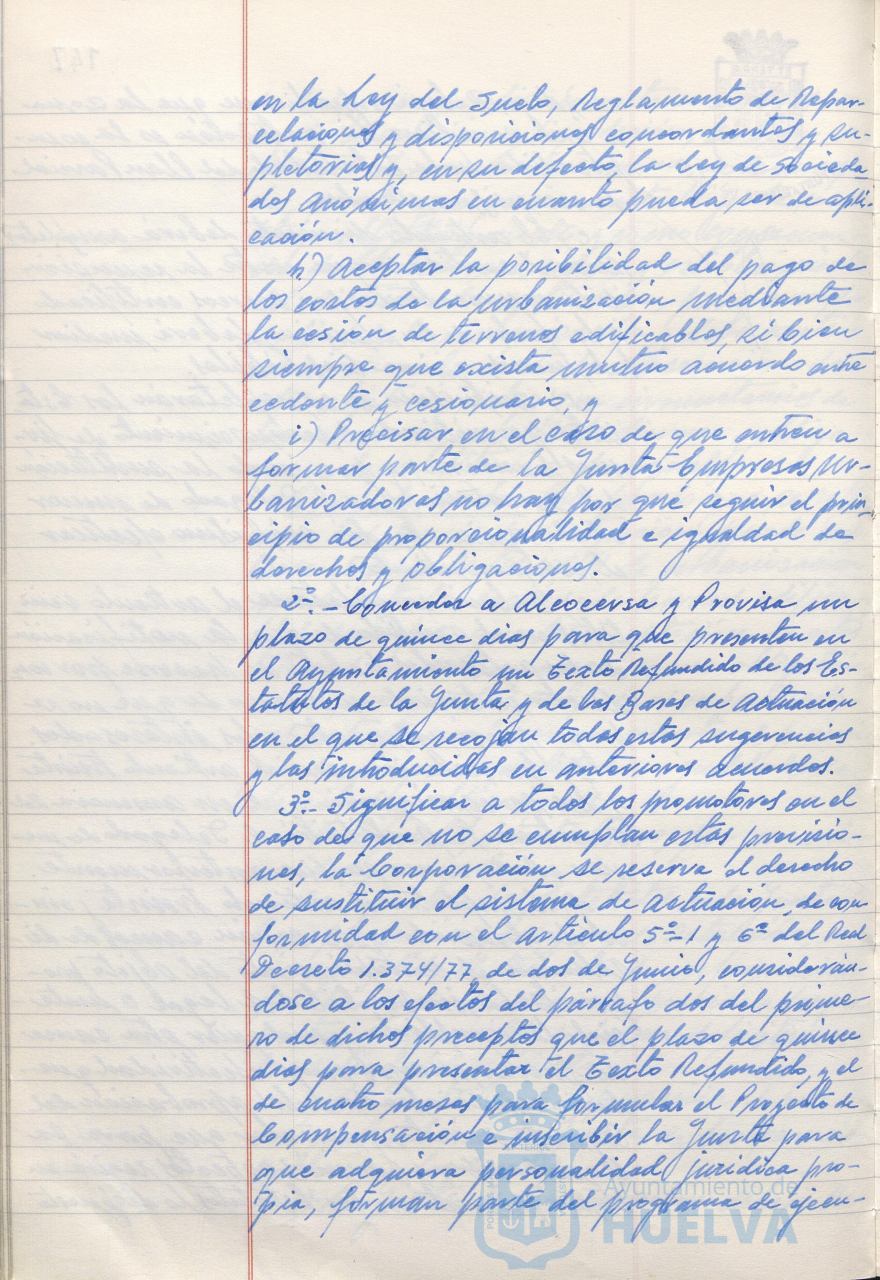 en la Ley del Suelo, Reglamento de Repar-
celaciones y disposiciones concordantes y su-
pletorias y, en su defecto, la Ley de Socieda-
des Anónimas en cuanto pueda ser de apli-
cación.
h) Aceptar la posibilidad del pago de
los costos de la urbanización mediante
la cesión de terrenos edificables, si bien
siempre que exista mutuo acuerdo entre
cedente y cesionario, y
i) Precisar en el caso de que entren a
formar parte de la Junta Empresas Ur-
banizadoras no hay por que seguir el prin-
cipio de proporcionalidad e igualdad de
derechos y obligaciones.
2º.- Conceder a Alcocersa y Provisa un
plazo de quince dias para que presenten en
el Ayuntamiento un Texto Refundido de los Es-
tatutos de la Junta y de las Bases de Actuación
en el que se recojan todas estas sugerencias
y las introducidas en anteriores acuerdos.
3º.- Significar a todos los promotores en el
caso de que no se cumplan estas previsio-
nes, la Corporación se reserva el derecho
de sustituir el sistema de actuación, de con-
formidad con el artículo 5º-1 y 6º del Real
Decreto 1.374/77, de dos de Junio, considerán-
dose a los efectos del párrafo dos del prime-
ro de dichos preceptos que el plazo de quince
dias para presentar el Texto Refundido, y el
de cuatro meses para formular el Proyecto de
Compensación e inscribir la Junta para
que adquiera personalidad jurídica pro-
pia, forman parte del programa de ejecu-
Ayuntamiento de
HUELVA